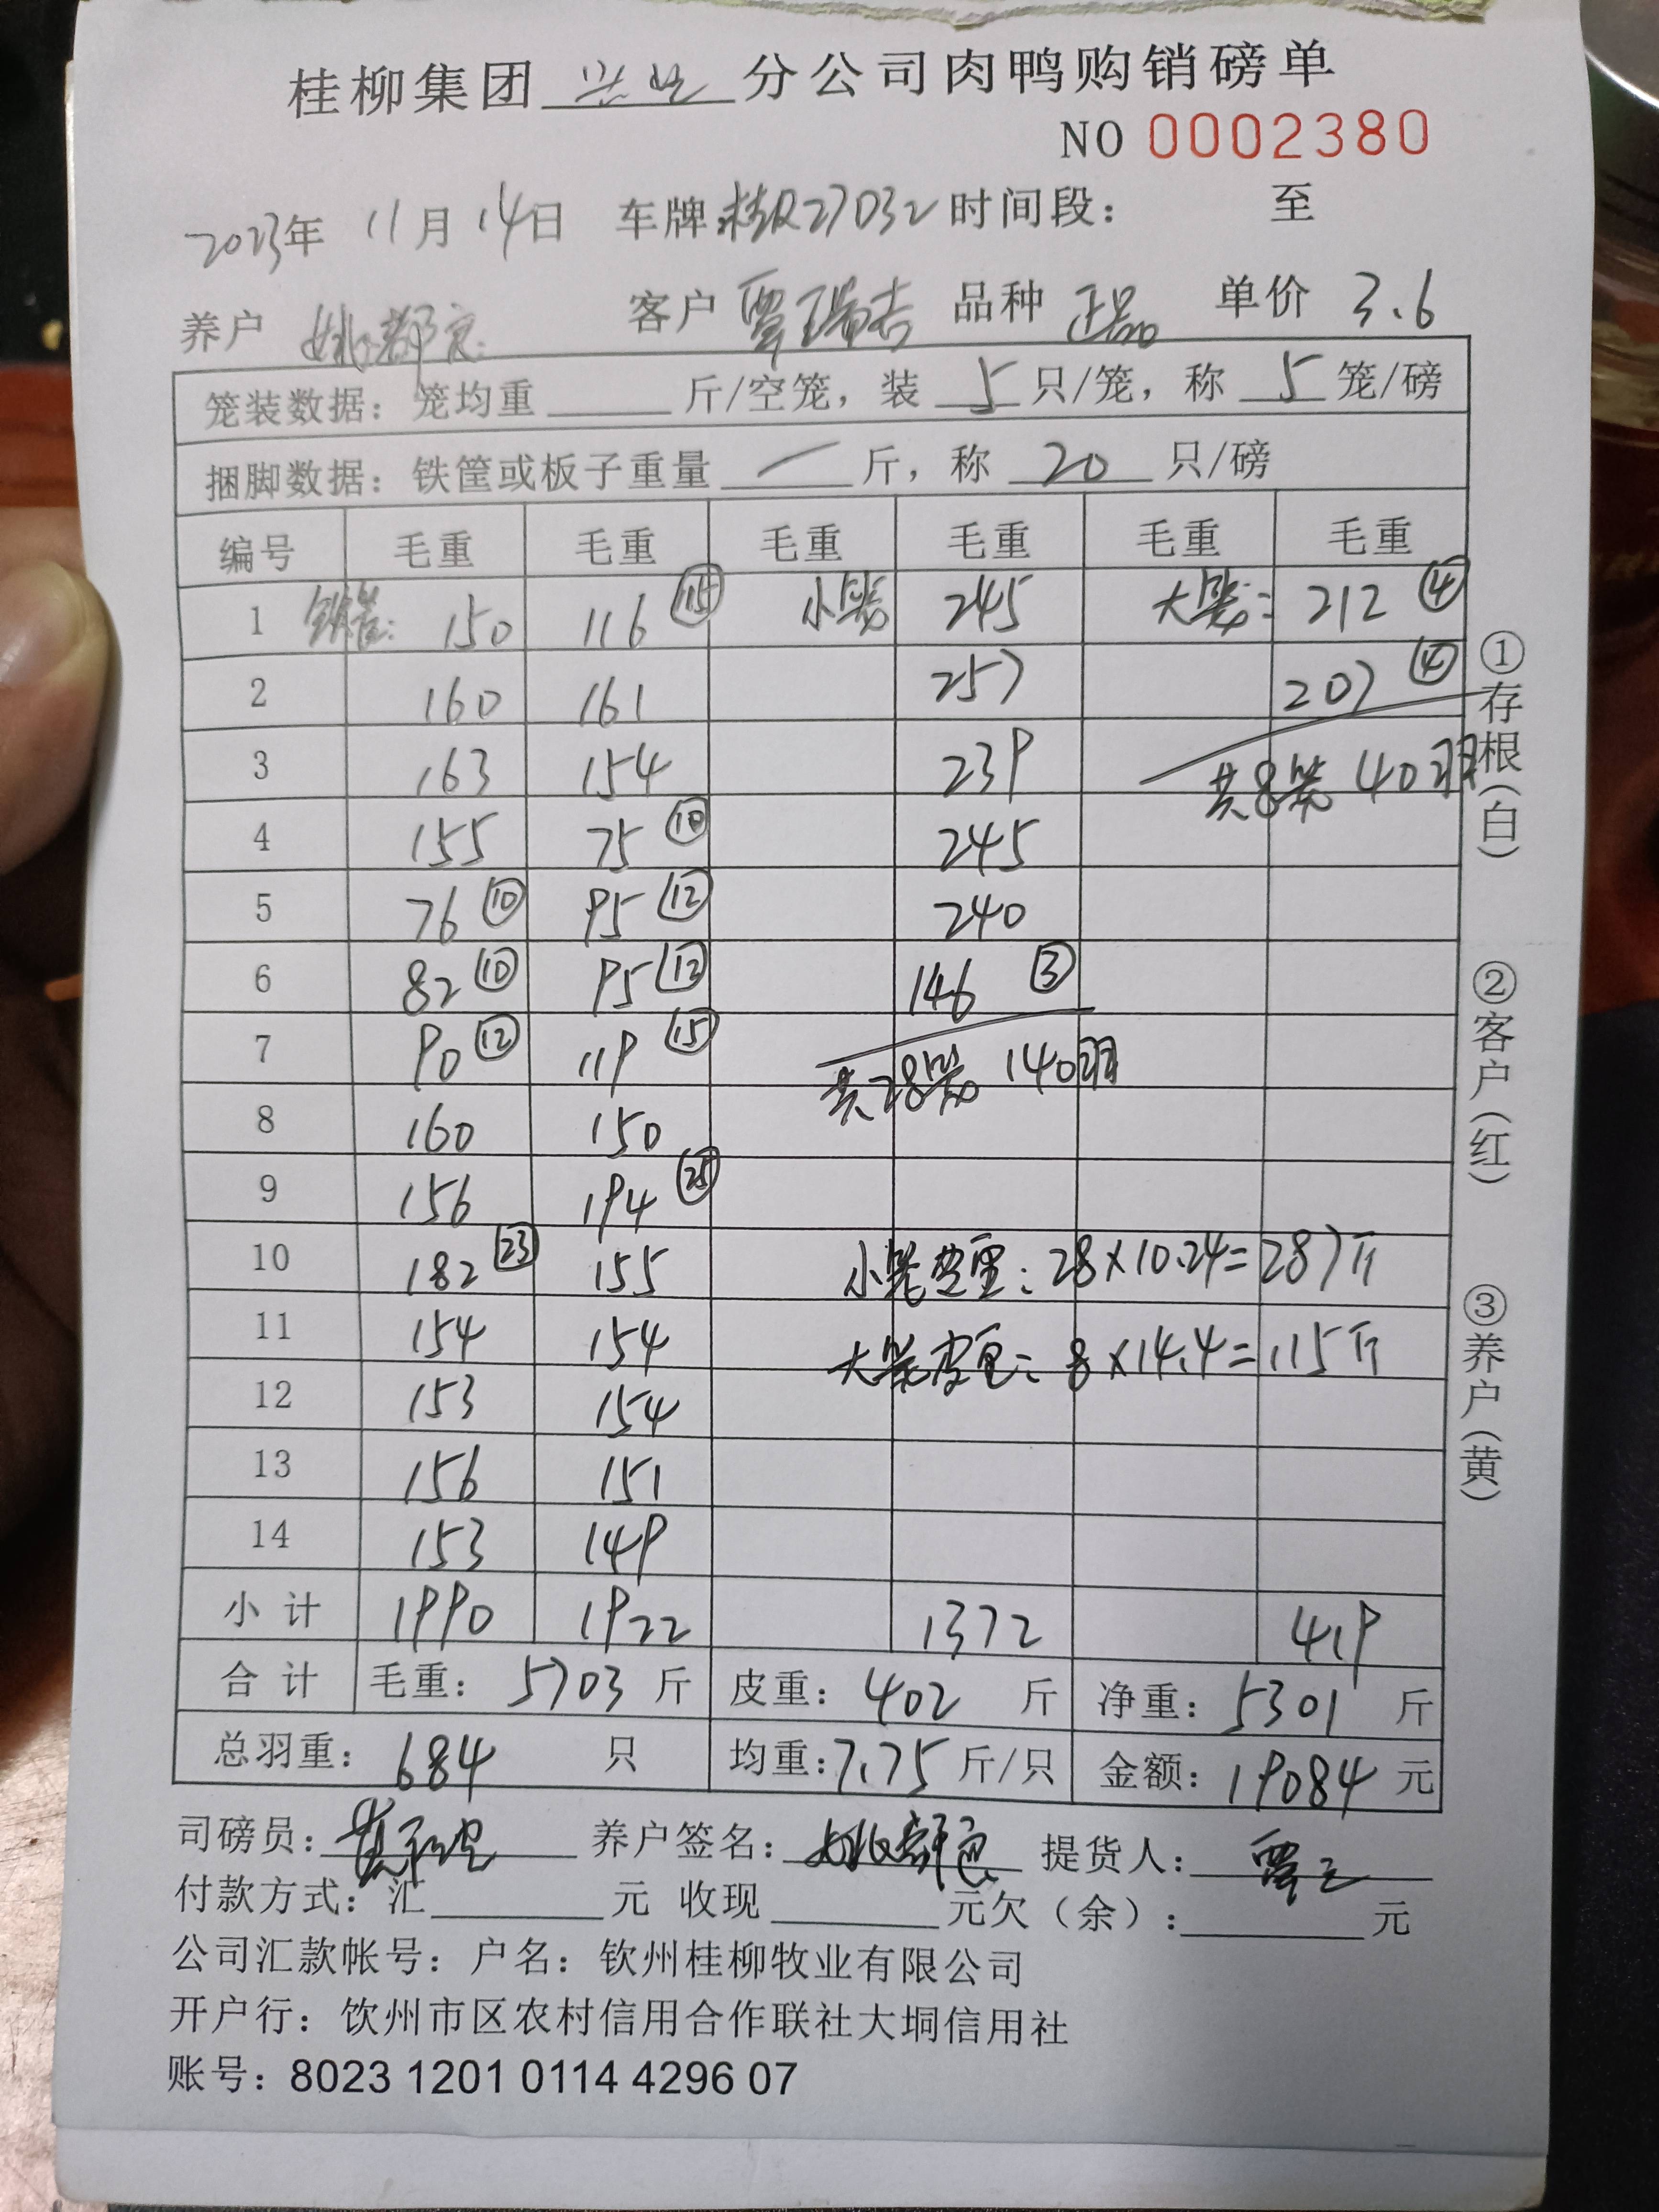 桂柳集团 分公司肉鸭购销磅单
NO 0002380
2023年 11月 14日 车牌:桂R27032 时间段: 至
养户 姚都良 客户 覃瑞吉 品种 正品 单价 3.6
笼装数据:笼均重 斤/空笼,装 5 只/笼,称 5 笼/磅
捆脚数据:铁筐或板子重量 一 斤,称 20 只/磅
编号 毛重 毛重 毛重 毛重 毛重 毛重
1 150 116 ⑮ 小笼 245 大笼: 212 ④
2 160 161 257 207 ④
3 163 154 239 共8笼 40羽
4 155 75 ⑩ 245
5 76 ⑩ 95 ⑫ 240
6 82 ⑩ 95 ⑫ 146 ③
7 90 ⑫ 119 ⑮ 共28笼 140羽
8 160 150
9 156 194 ㉕
10 182 ㉓ 155 小笼皮重:28×10.24=287斤
11 154 154 大笼皮重:8×14.4=115斤
12 153 154
13 156 151
14 153 149
小计 1990 1922 1372 419
合计 毛重:5703 斤 皮重:402 斤 净重:5301 斤
总羽重:684 只 均重:7.75 斤/只 金额:19084 元
司磅员: 养户签名: 提货人:
付款方式:汇 元 收现 元欠(余): 元
公司汇款帐号:户名:钦州桂柳牧业有限公司
开户行:饮州市区农村信用合作联社大垌信用社
账号:8023 1201 0114 4296 07
①存根(白)
②客户(红)
③养户(黄)